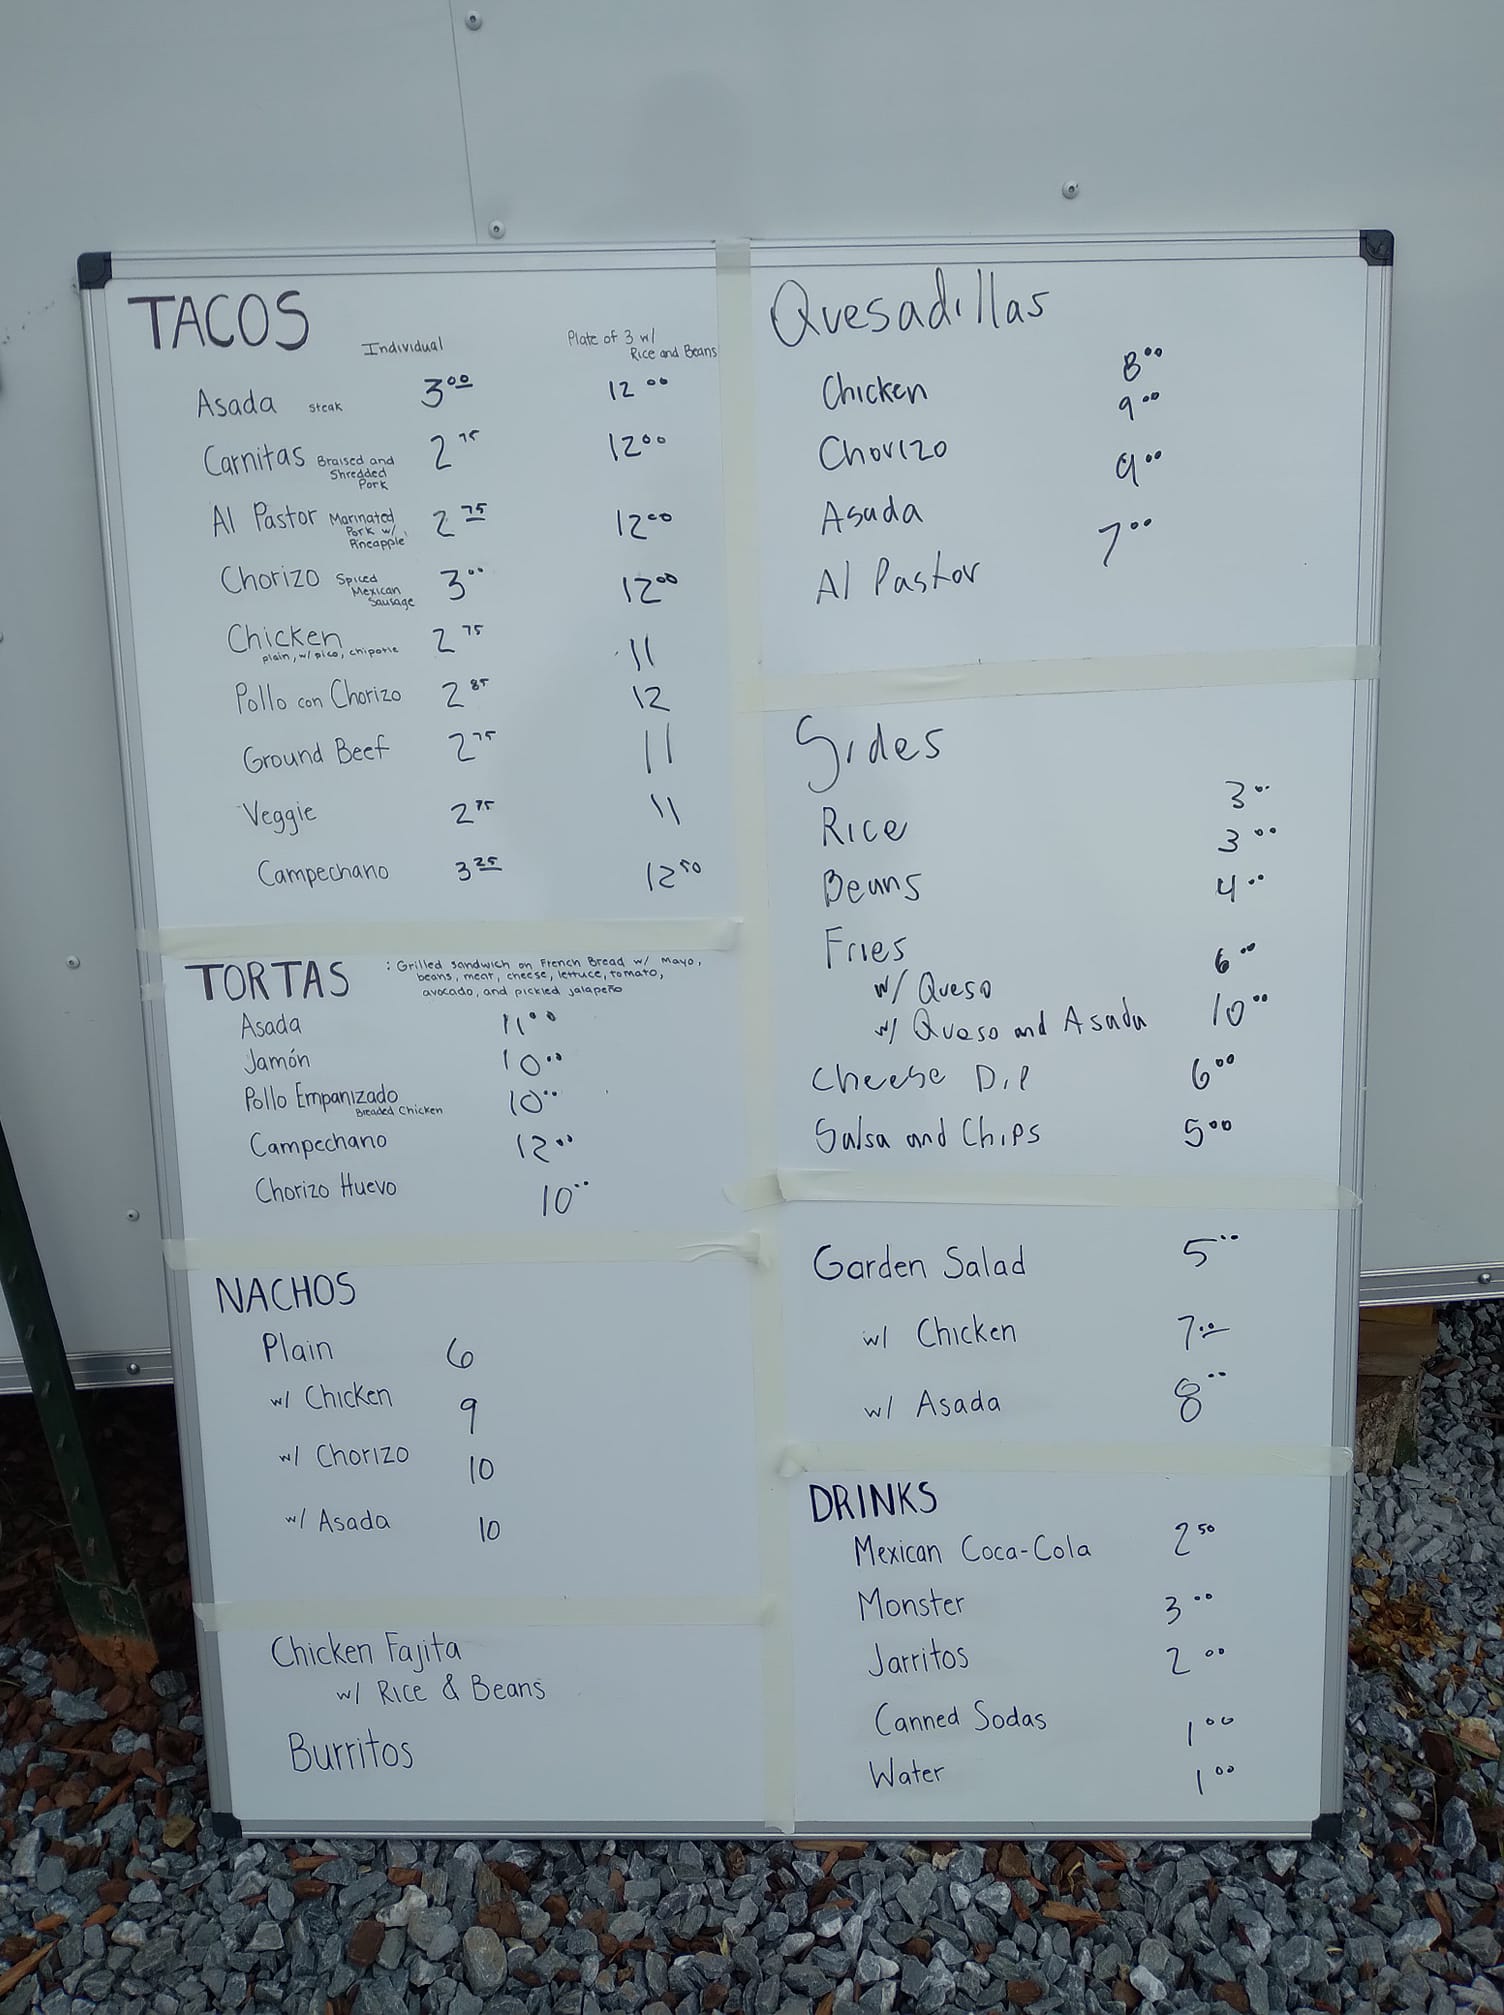 TACOS Individual Plate of 3 w/
Rice and Beans
Asada steak 3.00 12.00
Carnitas Braised and 2.75 12.00
Shredded
Pork
Al Pastor Marinated 2.75 12.00
Pork w/
Pineapple
Chorizo Spiced 3.00 12.00
Mexican
Sausage
Chicken 2.75 11
plain, w/ pico, chipotle
Pollo con Chorizo 2.85 12
Ground Beef 2.75 11
Veggie 2.75 11
Campechano 3.25 12.50
TORTAS : Grilled sandwich on French Bread w/ Mayo,
beans, meat, cheese, lettuce, tomato,
avocado, and pickled jalapeño
Asada 11.00
Jamón 10.00
Pollo Empanizado 10.00
Breaded Chicken
Campechano 12.00
Chorizo Huevo 10.00
NACHOS
Plain 6
w/ Chicken 9
w/ Chorizo 10
w/ Asada 10
Chicken Fajita
w/ Rice & Beans
Burritos
Quesadillas
Chicken 8.00
Chorizo 9.00
Asada 9.00
Al Pastor 7.00
Sides
Rice 3.00
Beans 3.00
Fries 4.00
w/ Queso 6.00
w/ Queso and Asada 10.00
Cheese Dip 6.00
Salsa and Chips 5.00
Garden Salad 5.00
w/ Chicken 7.00
w/ Asada 8.00
DRINKS
Mexican Coca-Cola 2.50
Monster 3.00
Jarritos 2.00
Canned Sodas 1.00
Water 1.00